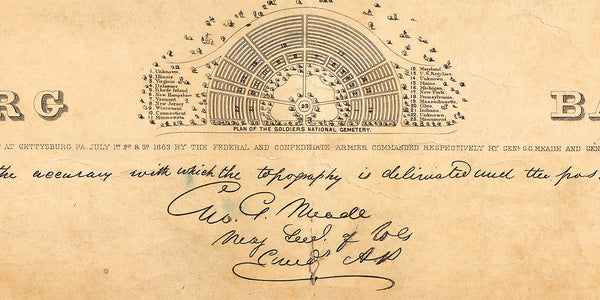 1 Unknown.
2 Illinois.
3 Virginia.
4 Delaware.
5 Rhode Island
6 New Hampshire
7 Vermont
8 New Jersey
12 Maryland
13 U.S. Regulars
14 Unknown.
15 Maine.
16 Michigan
17 New York
18 Pennsylvania.
19 Massachusetts
20 Ohio.
21 Indiana.
22 Unknown
23 Monument
RG
BA
PLAN OF THE SOLDIERS NATIONAL CEMETERY.
AT GETTYSBURG PA. JULY 1st 2d & 3d 1863 BY THE FEDERAL AND CONFEDERATE ARMIES COMMANDED RESPECTIVELY BY GENs. G.G. MEADE AND GEN
the accuracy with which the topography is delineated and the pos
Geo. G. Meade
Maj Genl. of Vols
Comdg A.P